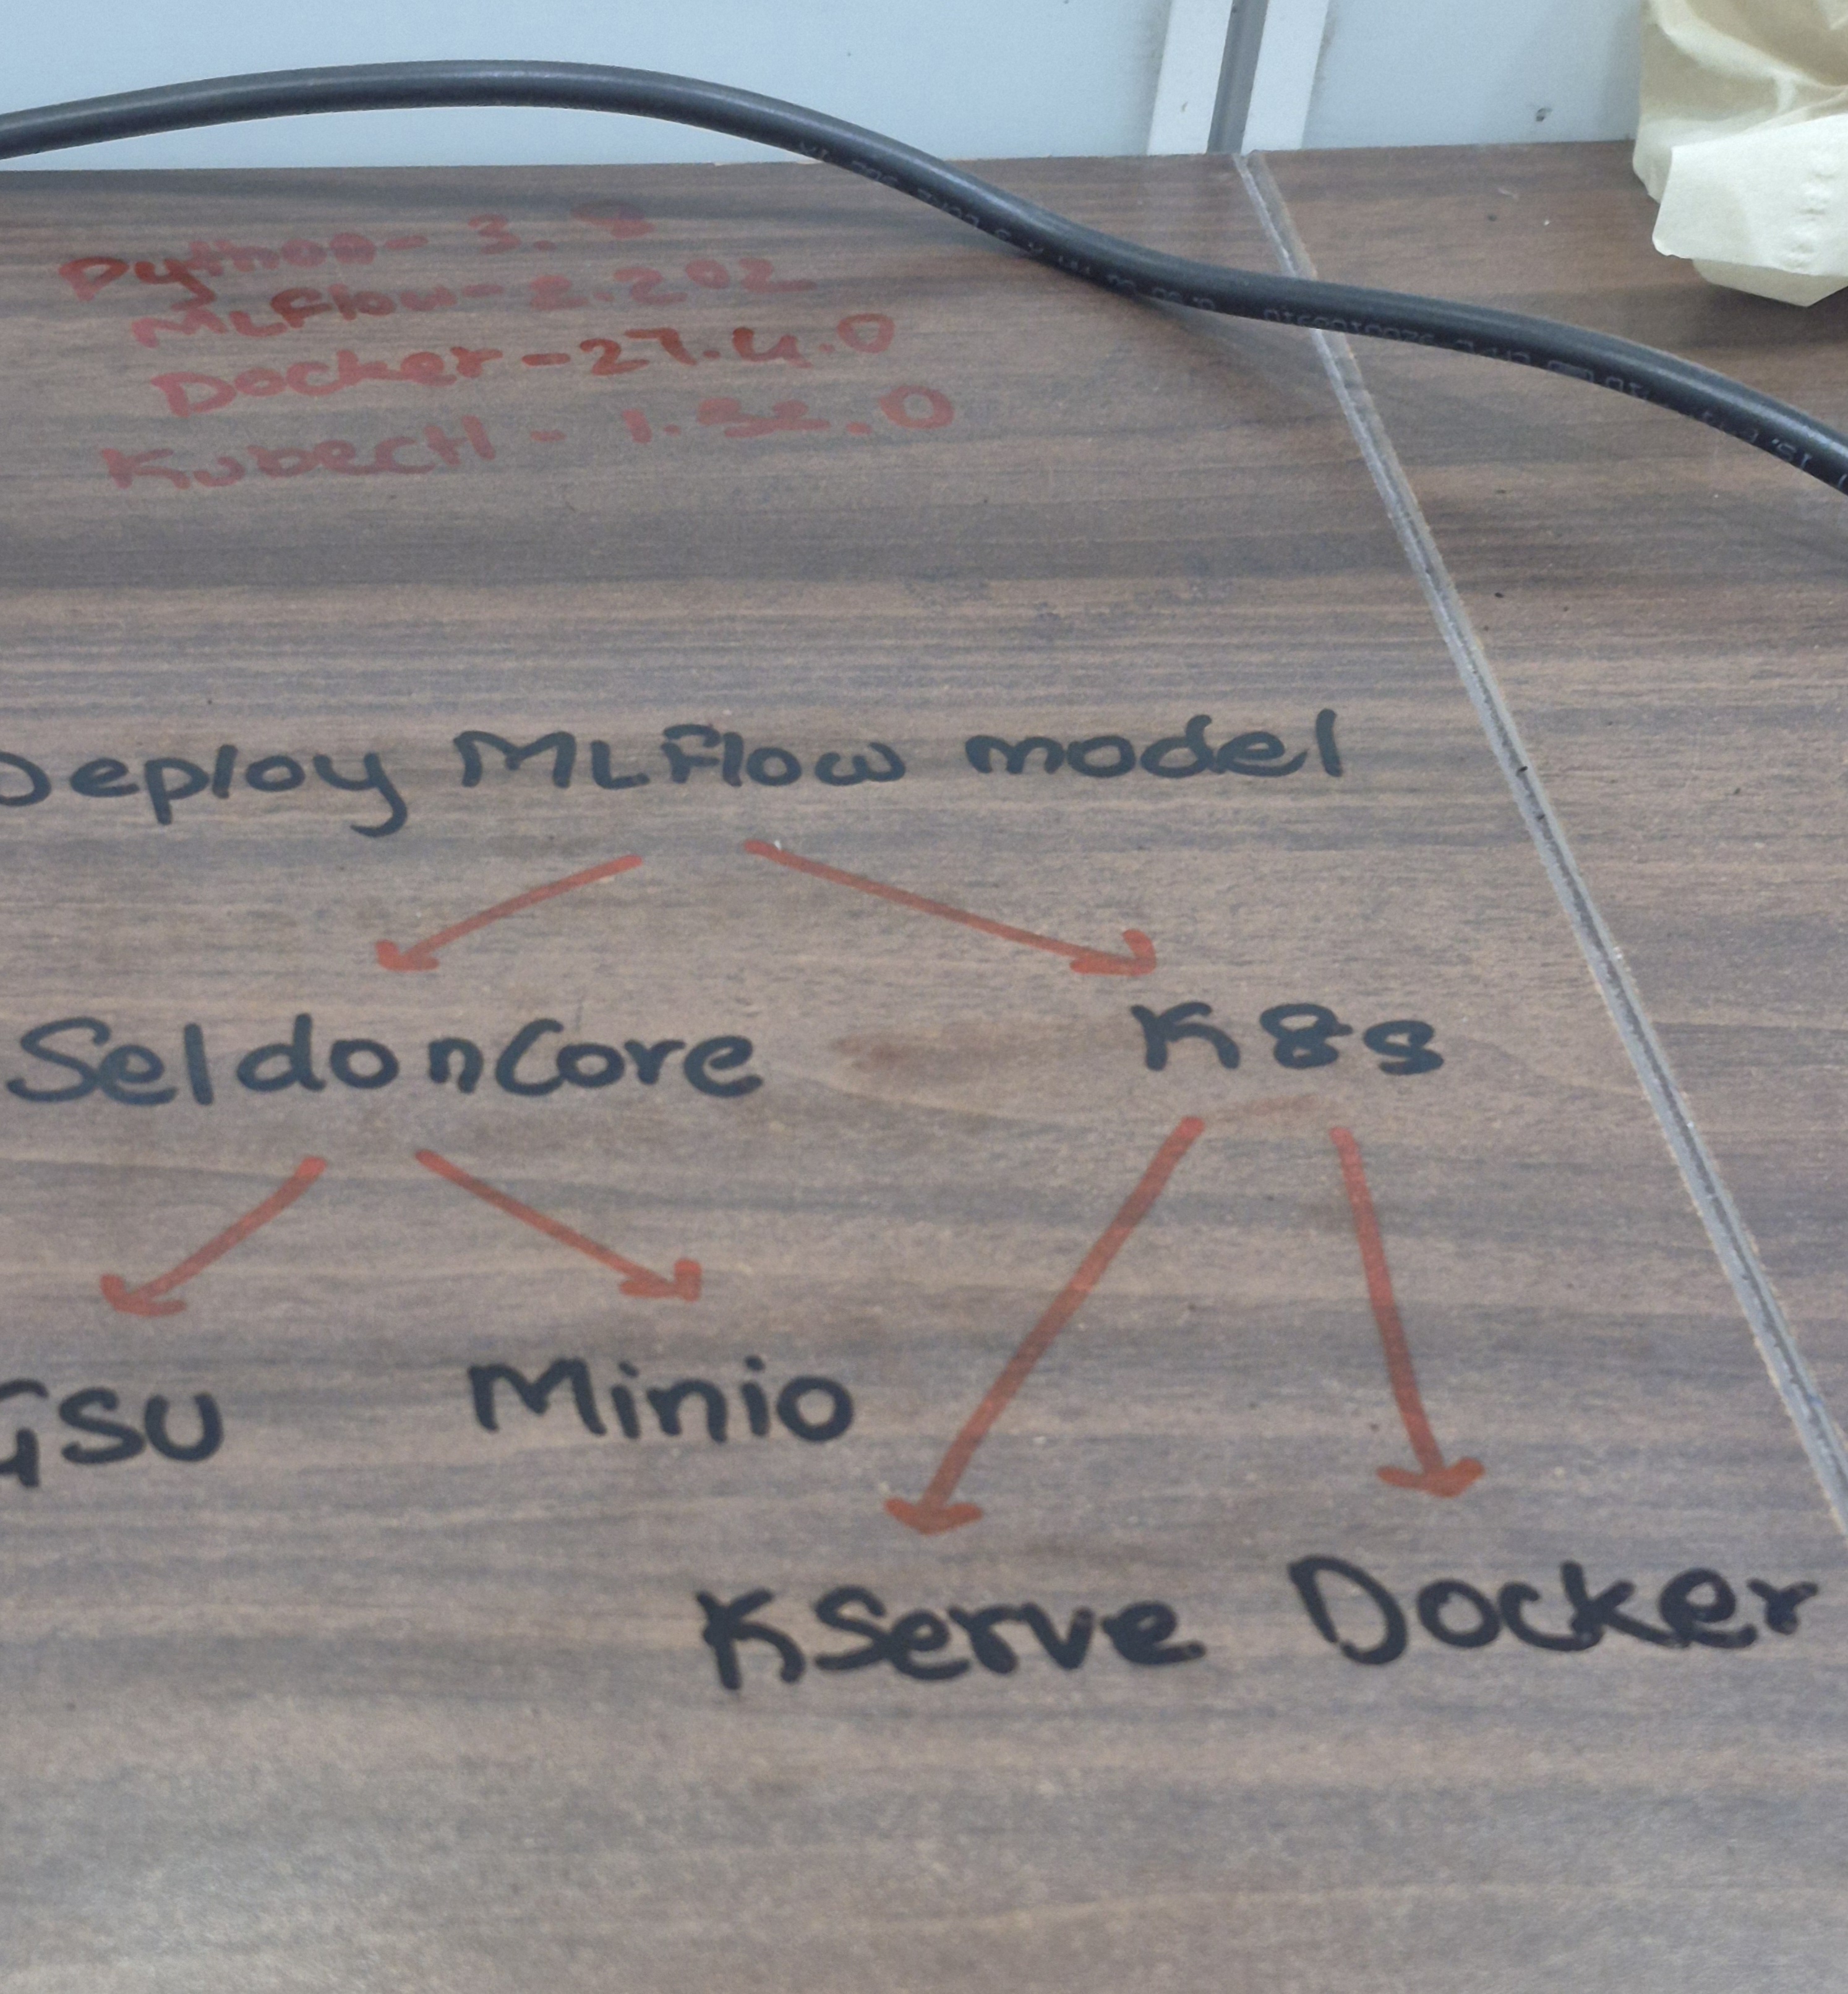 Python- 3.8
MLFlow-2.202
Docker-27.4.0
Kubectl - 1.32.0
Deploy MLFlow model
SeldonCore K8s
GSU Minio
KServe Docker